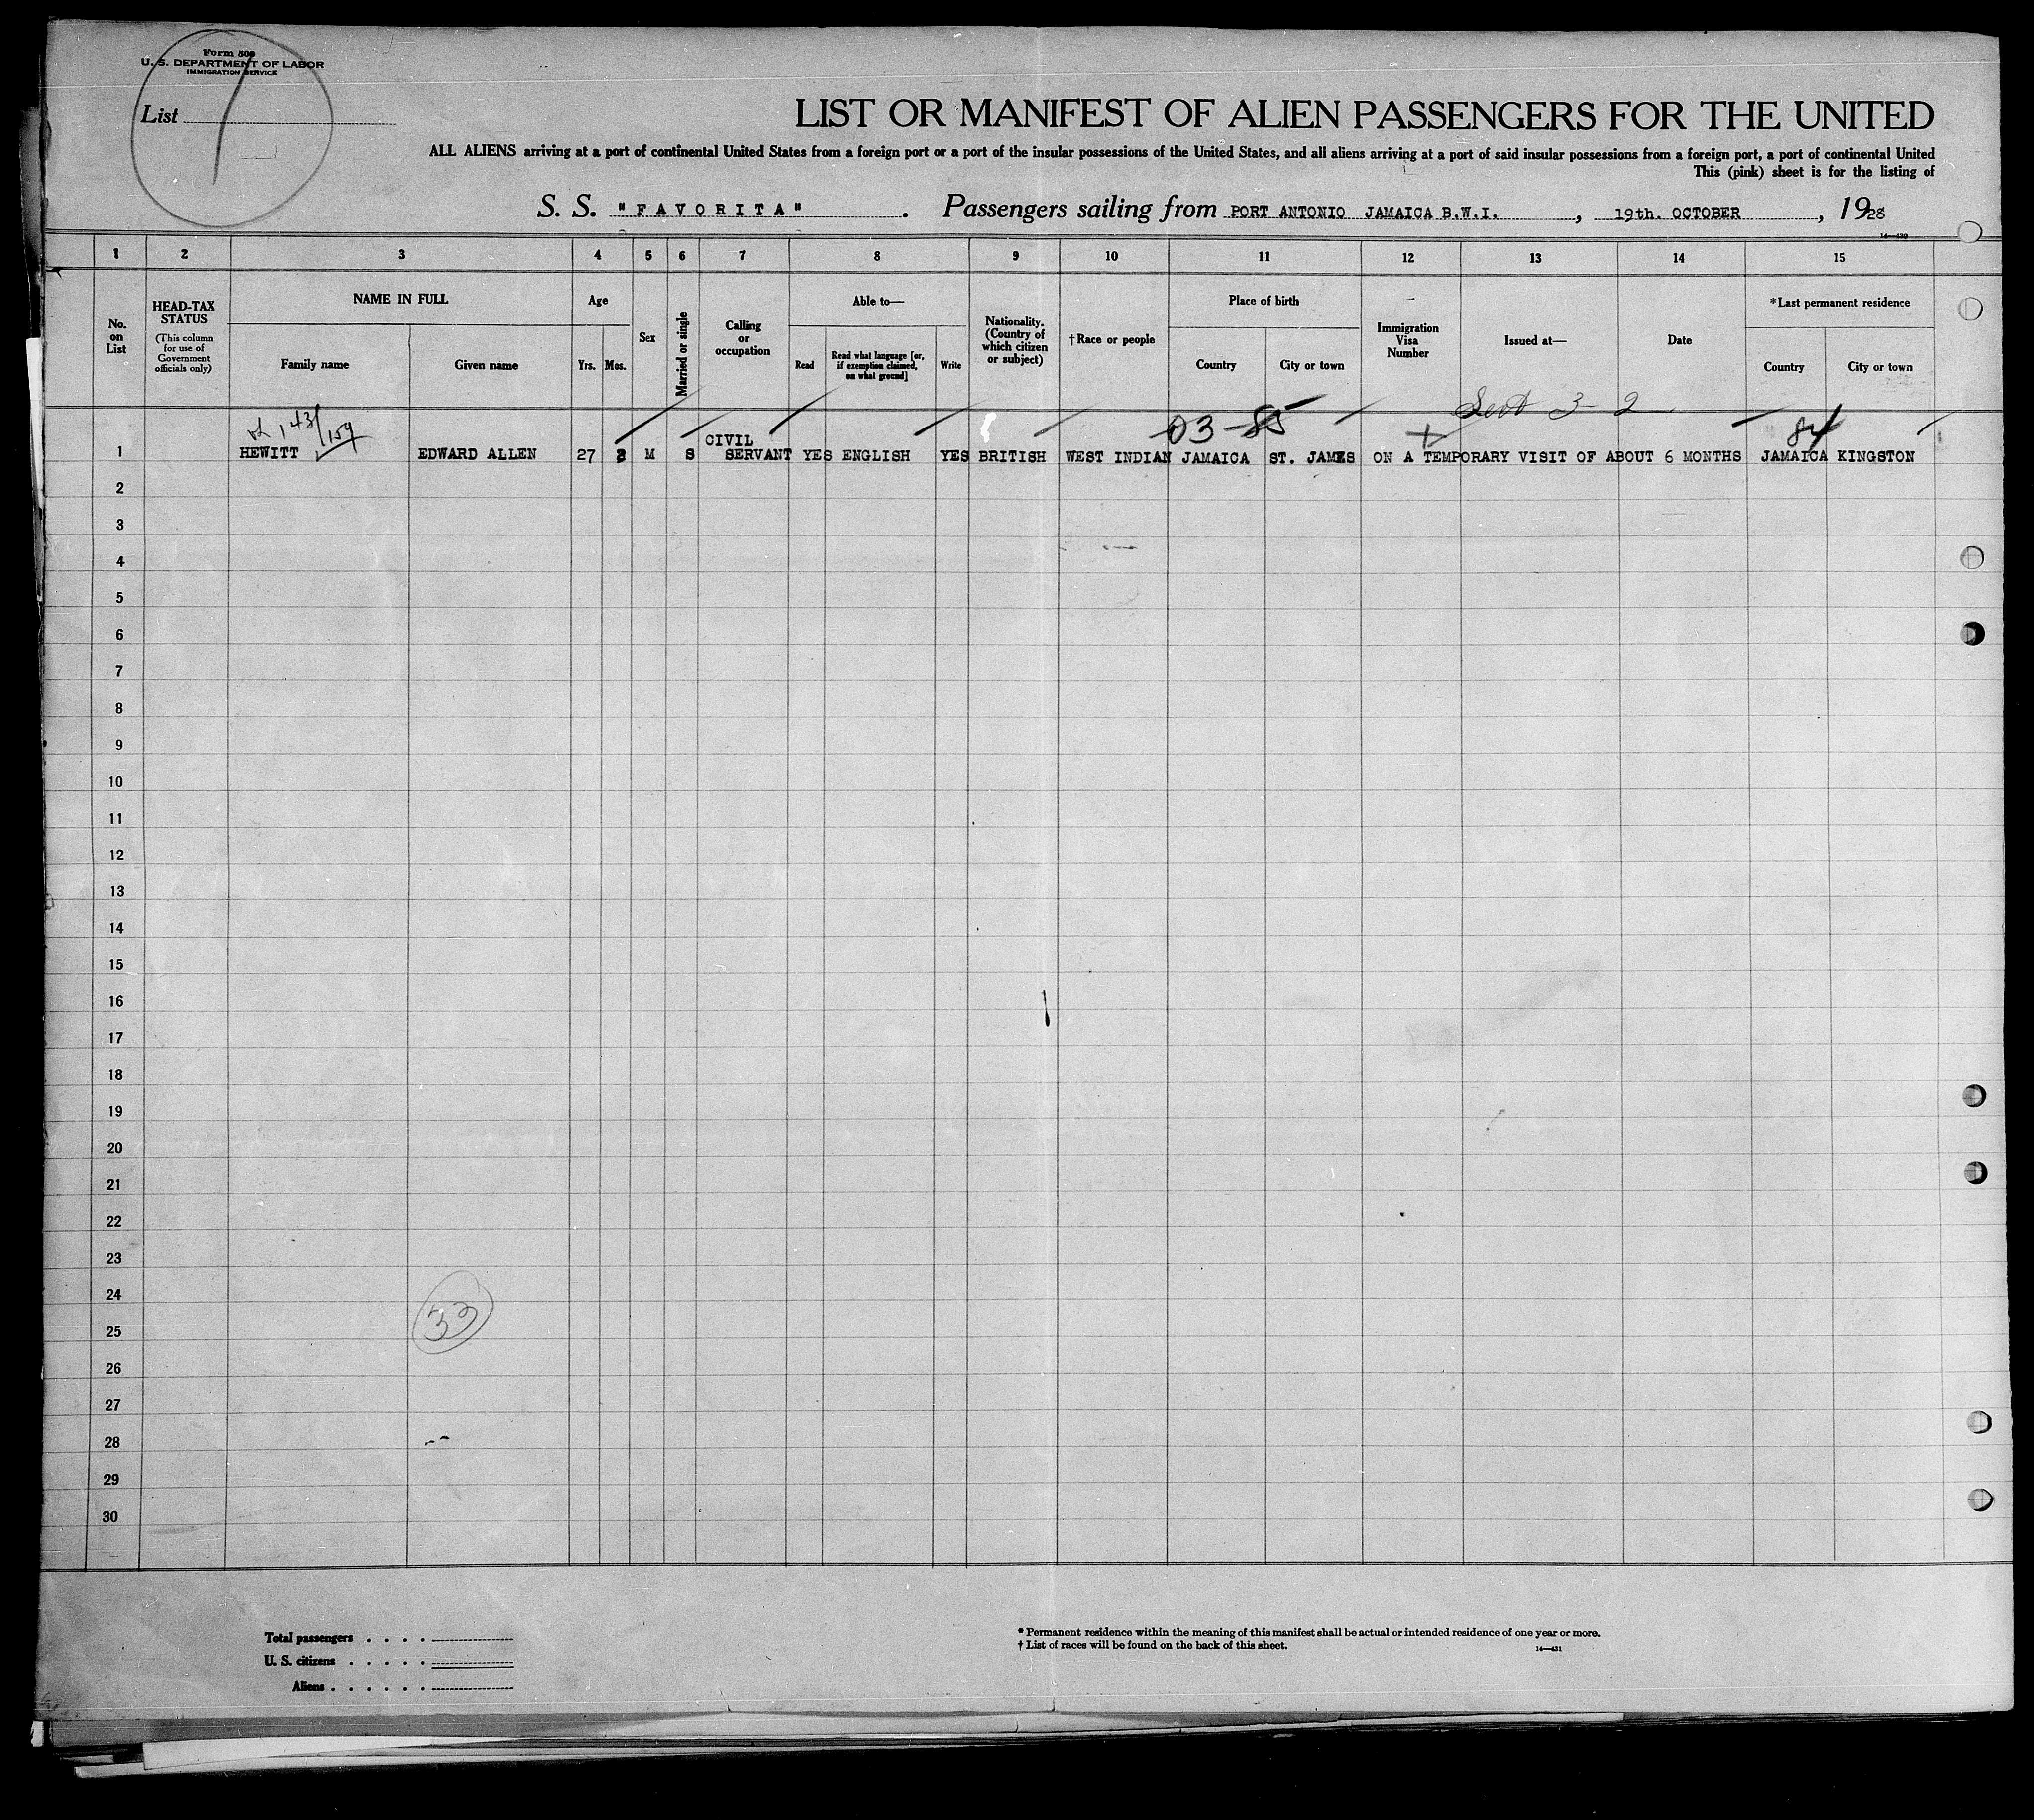 Form 500
U. S. DEPARTMENT OF LABOR
IMMIGRATION SERVICE
List 1
LIST OR MANIFEST OF ALIEN PASSENGERS FOR THE UNITED
ALL ALIENS arriving at a port of continental United States from a foreign port or a port of the insular possessions of the United States, and all aliens arriving at a port of said insular possessions from a foreign port, a port of continental United
This (pink) sheet is for the listing of
S. S. "FAVORITA". Passengers sailing from PORT ANTONIO JAMAICA B.W.I., 19th. OCTOBER, 1928
14—430
1 2 3 4 5 6 7 8 9 10 11 12 13 14 15
No. on List
HEAD-TAX STATUS
(This column for use of Government officials only)
NAME IN FULL
Family name
Given name
Age
Yrs. Mos.
Sex
Married or single
Calling or occupation
Able to—
Read
Read what language [or, if exemption claimed, on what ground]
Write
Nationality. (Country of which citizen or subject)
†Race or people
Place of birth
Country
City or town
Immigration Visa Number
Issued at—
Date
*Last permanent residence
Country
City or town
3-2
143/159
03-85
84
1 HEWITT EDWARD ALLEN 27 M S CIVIL SERVANT YES ENGLISH YES BRITISH WEST INDIAN JAMAICA ST. JAMES ON A TEMPORARY VISIT OF ABOUT 6 MONTHS JAMAICA KINGSTON
2
3
4
5
6
7
8
9
10
11
12
13
14
15
16
17
18
19
20
21
22
23
24
33
25
26
27
28
29
30
Total passengers . . . .
U. S. citizens . . . . .
Aliens . . . . . .
* Permanent residence within the meaning of this manifest shall be actual or intended residence of one year or more.
† List of races will be found on the back of this sheet.
14—431